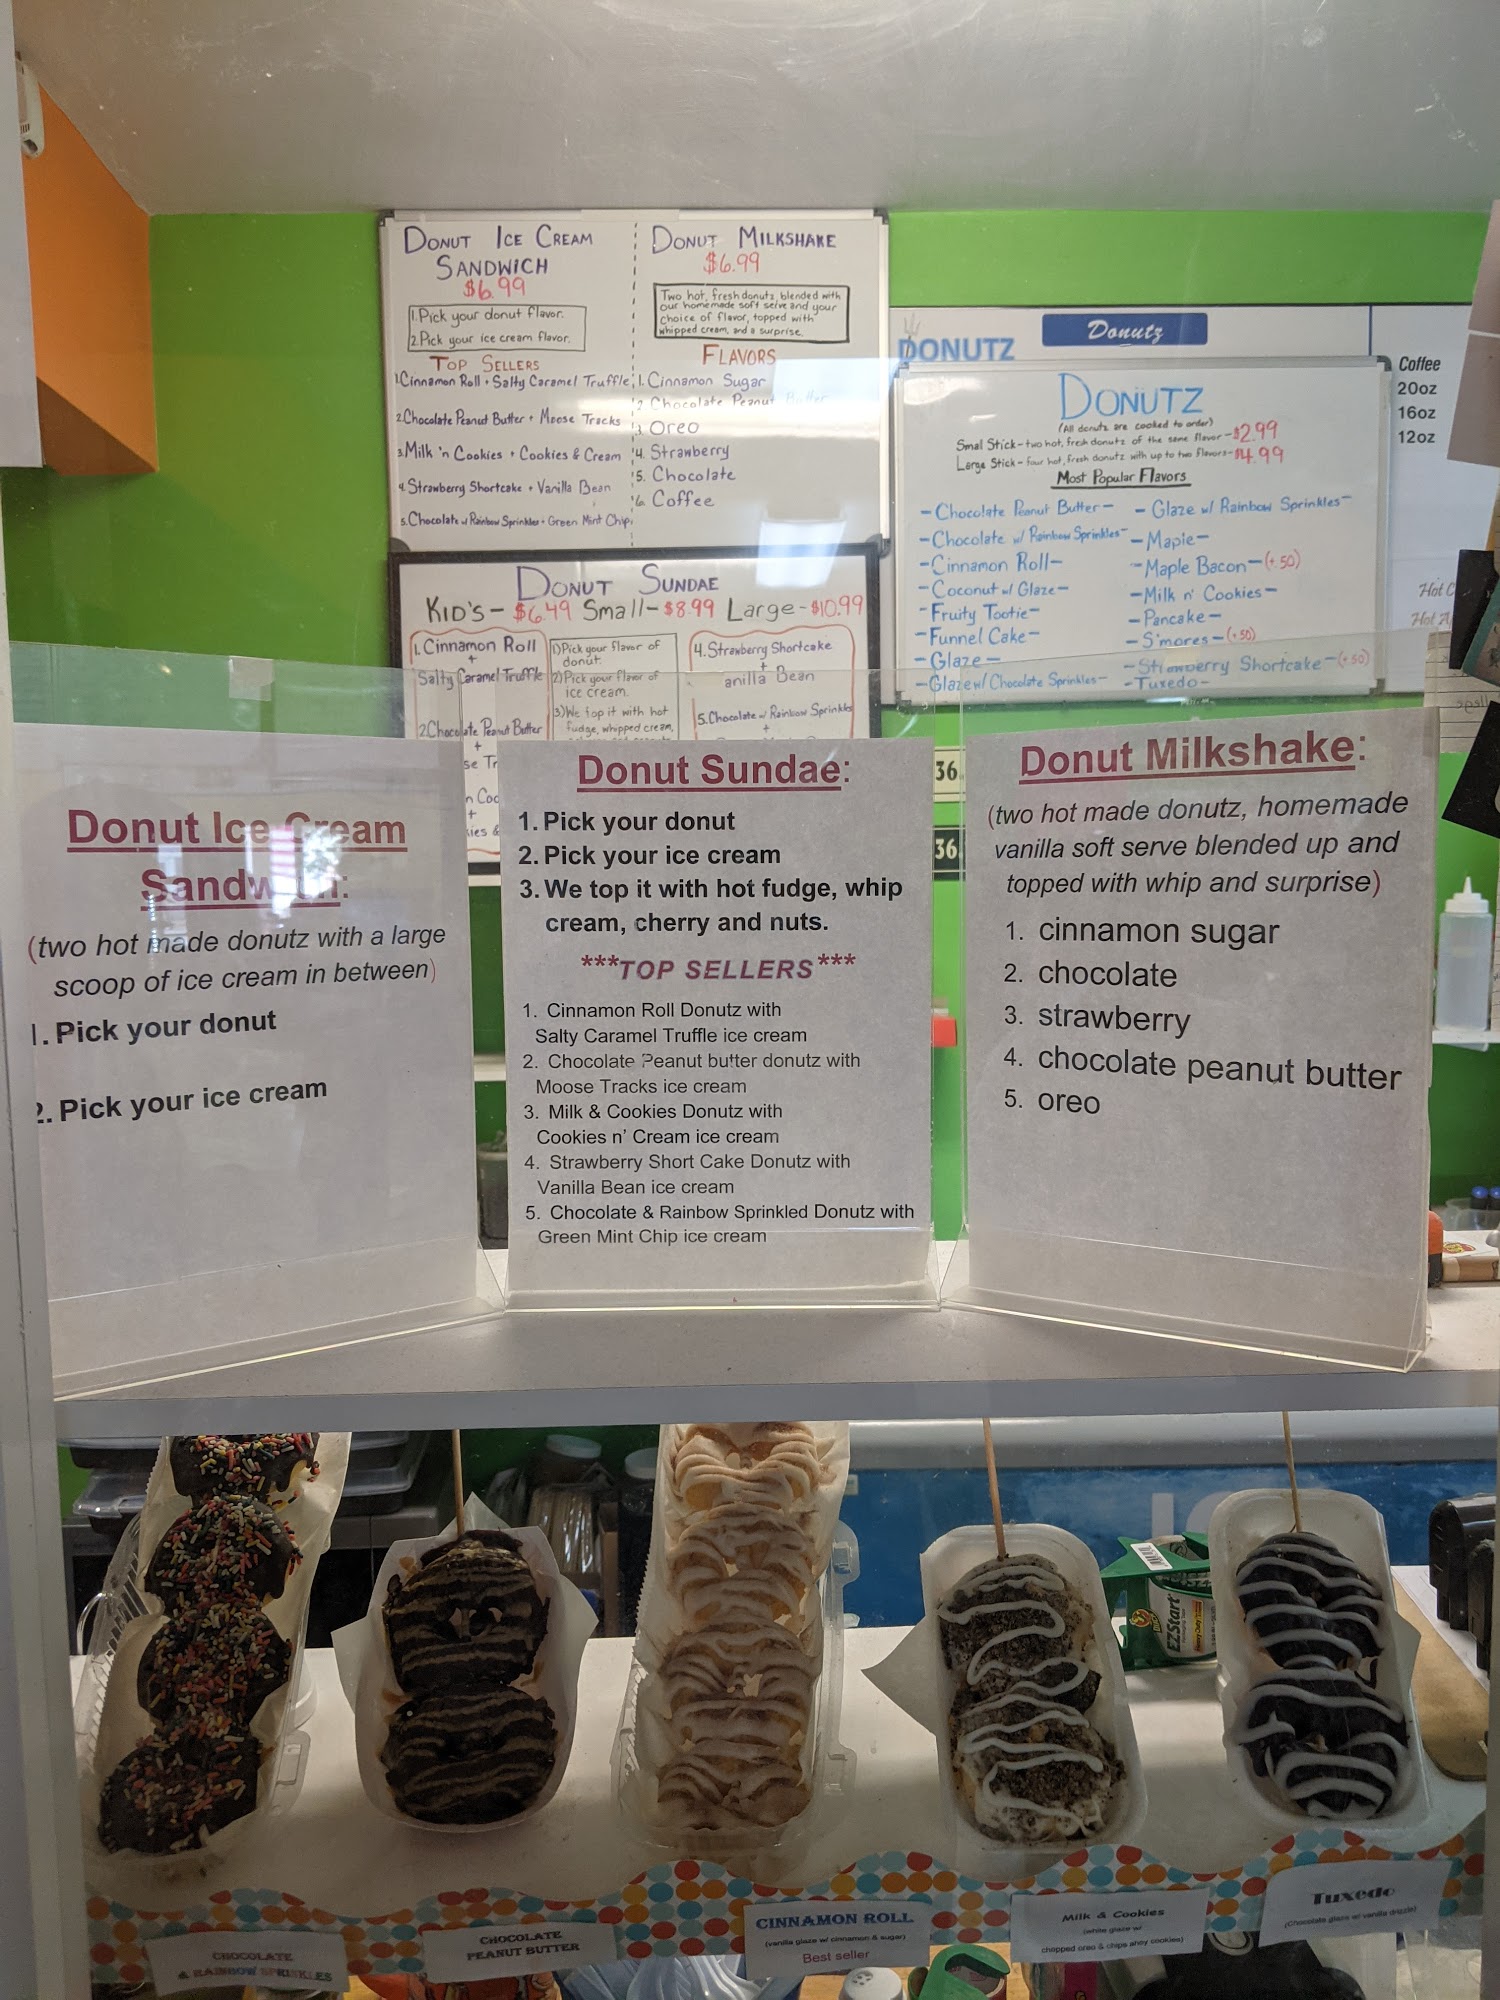 DONUT ICE CREAM
SANDWICH
$6.99
1.Pick your donut flavor.
2.Pick your ice cream flavor.
TOP SELLERS
1.Cinnamon Roll + Salty Caramel Truffle
2.Chocolate Peanut Butter + Moose Tracks
3.Milk 'n Cookies + Cookies & Cream
4.Strawberry Shortcake + Vanilla Bean
5.Chocolate w/ Rainbow Sprinkles + Green Mint Chip
DONUT MILKSHAKE
$6.99
Two hot, fresh donutz, blended with
our homemade soft serve and your
choice of flavor, topped with
whipped cream, and a surprise.
FLAVORS
1. Cinnamon Sugar
2. Chocolate Peanut Butter
3. Oreo
4. Strawberry
5. Chocolate
6. Coffee
DONUT SUNDAE
KID'S- $6.49 Small- $8.99 Large- $10.99
1.Cinnamon Roll
+
Salty Caramel Truffle
2.Chocolate Peanut Butter
+
se Tr
n Coo
+
ies &
1)Pick your flavor of
donut.
2)Pick your flavor of
ice cream.
3)We top it with hot
fudge, whipped cream,
4.Strawberry Shortcake
+
anilla Bean
5.Chocolate w/ Rainbow Sprinkles
+
DONUTZ
Donutz
DONUTZ
(All donutz are cooked to order)
Small Stick-two hot, fresh donutz of the same flavor-$2.99
Large Stick-four hot, fresh donutz with up to two flavors-$4.99
Most Popular Flavors
-Chocolate Peanut Butter-
-Chocolate w/ Rainbow Sprinkles-
-Cinnamon Roll-
-Coconut w/ Glaze-
-Fruity Tootie-
-Funnel Cake-
-Glaze-
-Glaze w/ Chocolate Sprinkles-
-Glaze w/ Rainbow Sprinkles-
-Maple-
-Maple Bacon-(+.50)
-Milk n' Cookies-
-Pancake-
-S'mores-(+.50)
-Strawberry Shortcake-(+.50)
-Tuxedo-
Coffee
20oz
16oz
12oz
Hot C
Hot A
36
36
Donut Ice Cream
Sandwich:
(two hot made donutz with a large
scoop of ice cream in between)
1. Pick your donut
2. Pick your ice cream
Donut Sundae:
1. Pick your donut
2. Pick your ice cream
3. We top it with hot fudge, whip
cream, cherry and nuts.
***TOP SELLERS***
1. Cinnamon Roll Donutz with
Salty Caramel Truffle ice cream
2. Chocolate Peanut butter donutz with
Moose Tracks ice cream
3. Milk & Cookies Donutz with
Cookies n' Cream ice cream
4. Strawberry Short Cake Donutz with
Vanilla Bean ice cream
5. Chocolate & Rainbow Sprinkled Donutz with
Green Mint Chip ice cream
Donut Milkshake:
(two hot made donutz, homemade
vanilla soft serve blended up and
topped with whip and surprise)
1. cinnamon sugar
2. chocolate
3. strawberry
4. chocolate peanut butter
5. oreo
EZStart
CHOCOLATE
& RAINBOW SPRINKLES
CHOCOLATE
PEANUT BUTTER
CINNAMON ROLL
(vanilla glaze w/ cinnamon & sugar)
Best seller
Milk & Cookies
(white glaze w/
chopped oreo & chips ahoy cookies)
Tuxedo
(Chocolate glaze w/ vanilla drizzle)